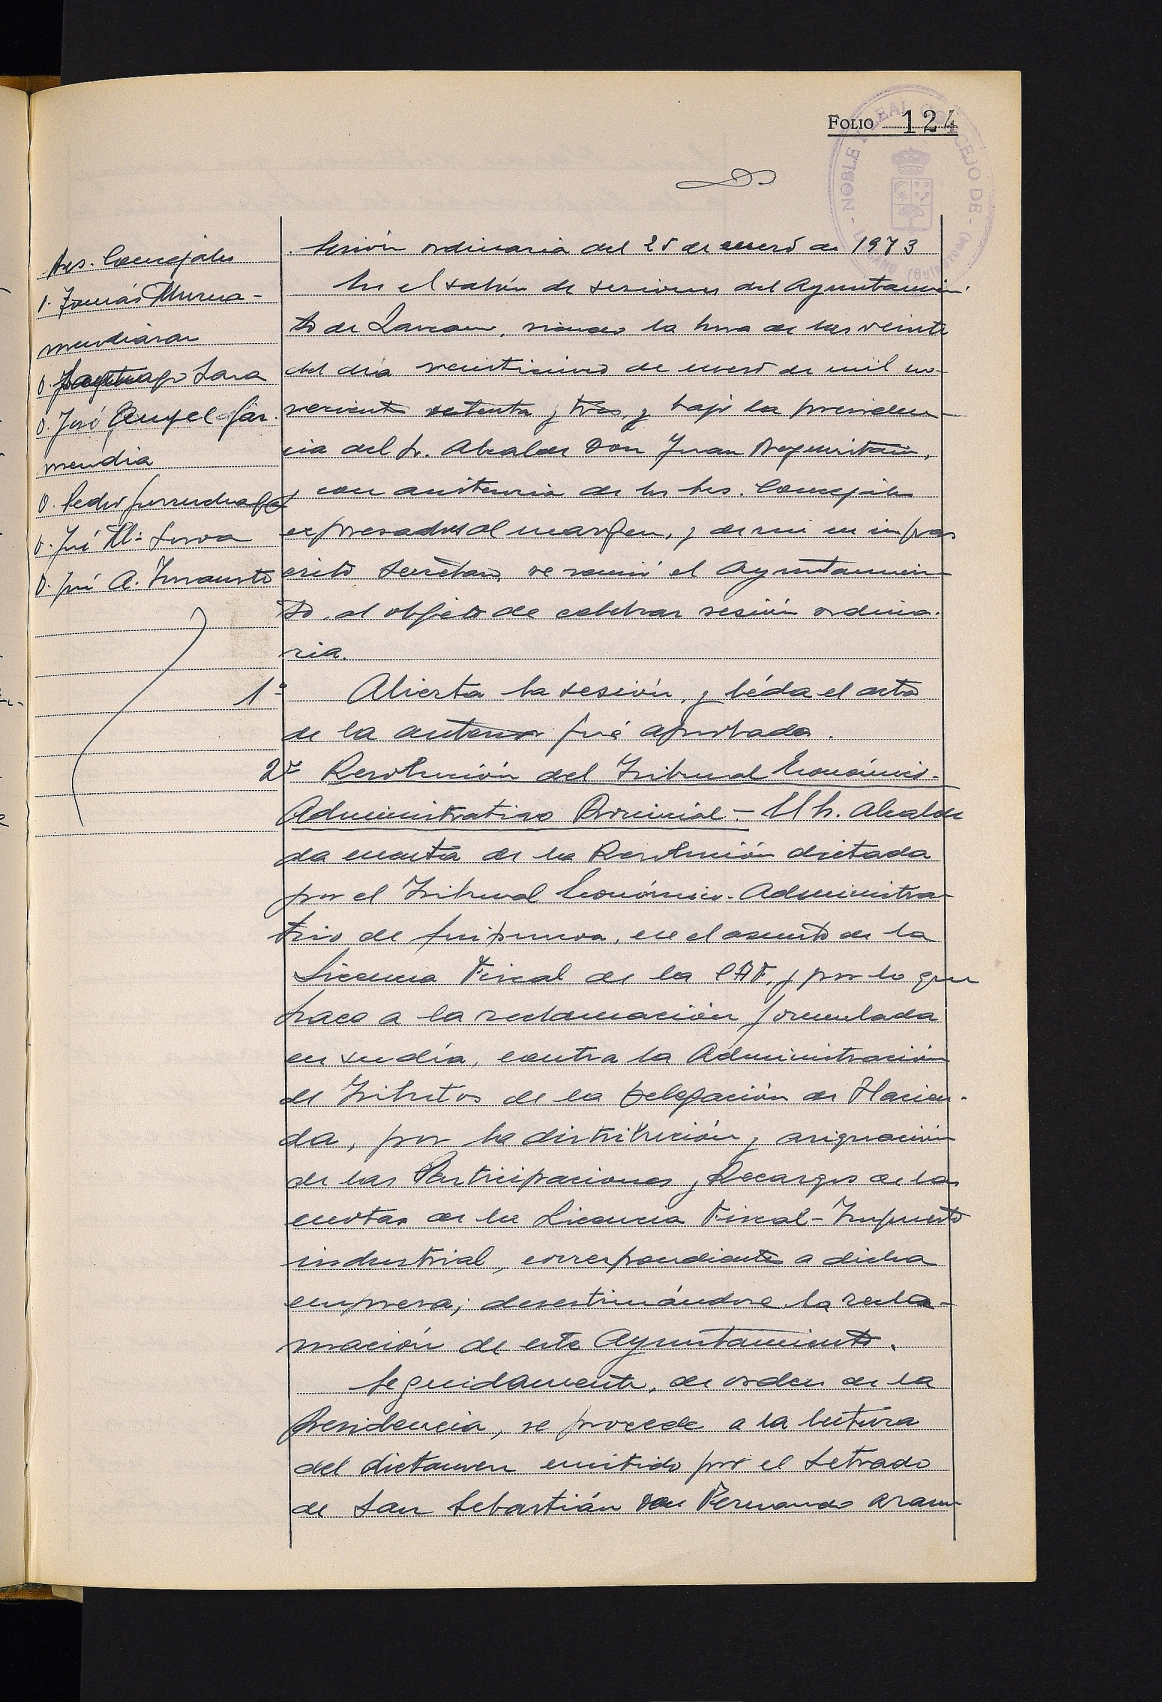 FOLIO 124
NOBLE Y LEAL CONCEJO DE
Sres. Concejales
D. Tomás Murua-
mendiaraz
D. Santiago Lasa
D. José Angel Gar-
mendia
D. Pedro
D. José Mª
D. José A. Irazusta
Sesión ordinaria del 25 de enero de 1973
En el salón de sesiones del Ayuntamien-
to de Lazcano, siendo la hora de las veinte
del día veinticinco de enero de mil no-
vecientos setenta y tres, y bajo la presiden-
cia del Sr. Alcalde Don Juan
y con asistencia de los Sres. Concejales
expresados al margen, y de mi el infras-
crito Secretario, se reunió el Ayuntamien-
to, al objeto de celebrar sesión ordina-
ria.
1º Abierta la sesión, y leída el acta
de la anterior fué aprobada.
2º Resolución del Tribunal Económico-
Administrativo Provincial - El Sr. Alcalde
da cuenta de la Resolución dictada
por el Tribunal Económico-Administra-
tivo de Guipuzcoa, en el asunto de la
Licencia Fiscal de la CAF, y por lo que
hace a la reclamación formulada
en su día, contra la Administración
de Tributos de la Delegación de Hacien-
da, por la distribución y asignación
de las Participaciones y Recargos de las
cuotas de la Licencia Fiscal-Impuesto
industrial, correspondientes a dicha
empresa; desestimándose la recla-
mación de este Ayuntamiento.
Seguidamente, de orden de la
Presidencia, se procede a la lectura
del dictamen emitido por el Letrado
de San Sebastián Don Fernando Aram-